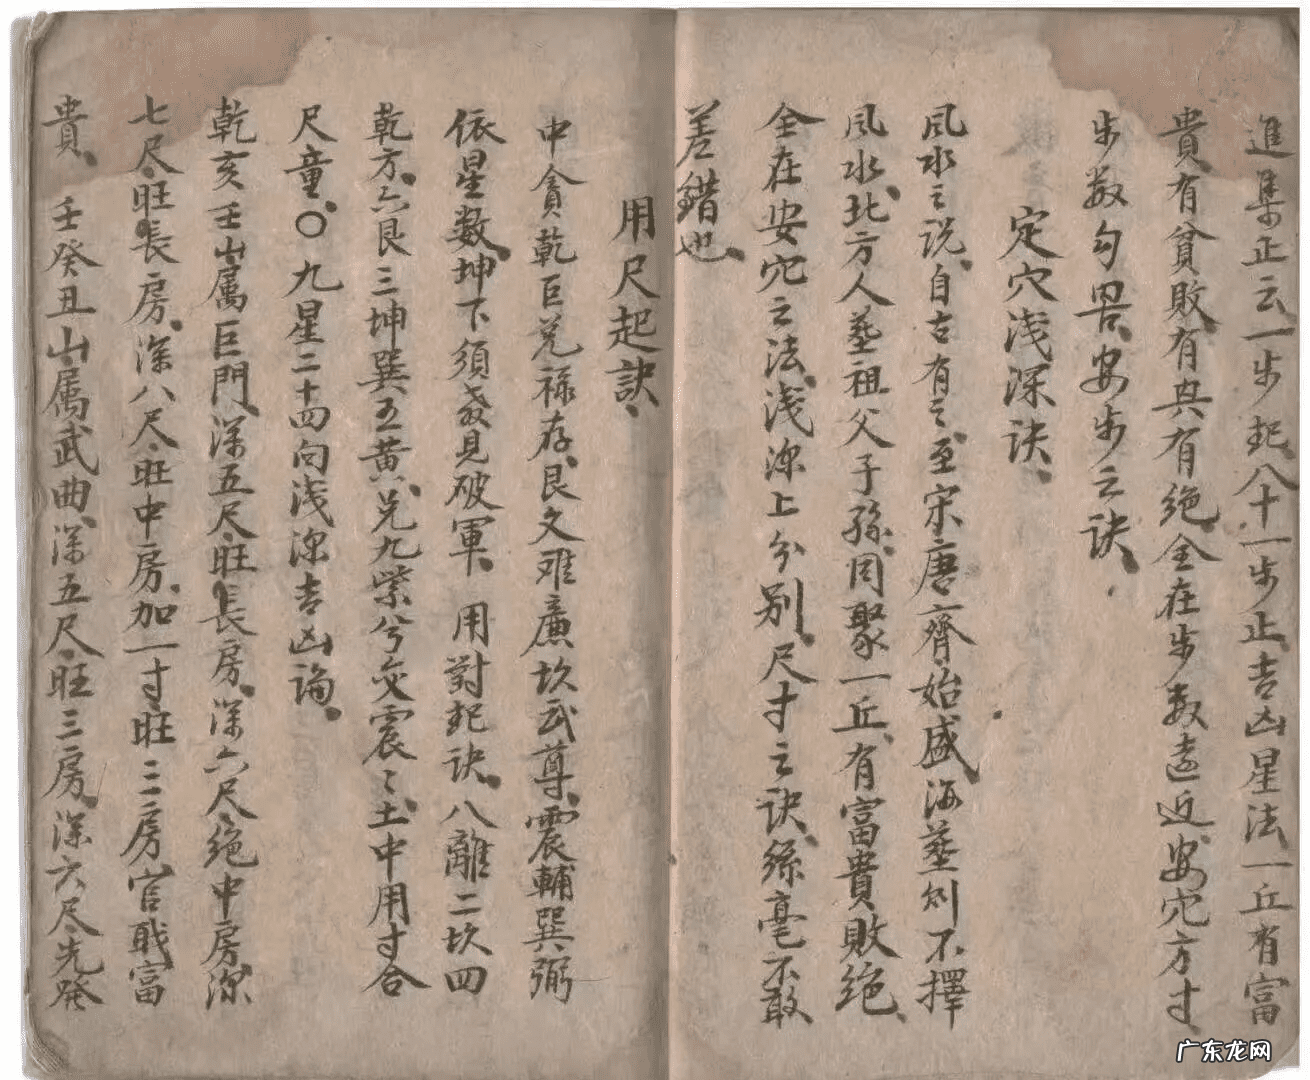 進集正云一步起八十一步止吉凶星法一丘有富
貴有貧敗有興有絕全在步数遠近安穴方寸
步数勾畧安步之訣
定穴浅深訣
風水之説自古有之至宋唐齊始盛海葬則不擇
風水北方人葬祖父子孫同聚一丘有富貴敗絕
全在安穴之法浅深上分别尺寸之訣絲毫不敢
差錯也
用尺起訣
中貪乾巨兑禄存艮文难廉坎武尊震輔巽弼
依星数坤下須教見破軍 用對起訣八離二坎四
乾方六艮三坤巽五黃兑九紫兮交震〻土中用寸合
尺童〇九星二十四向浅深吉凶論
乾亥壬山属巨門深五尺旺長房深六尺绝中房深
七尺旺長房深八尺旺中房加一寸旺三房官職富
貴 壬癸丑山属武曲深五尺旺三房深六尺先發
广东龙网